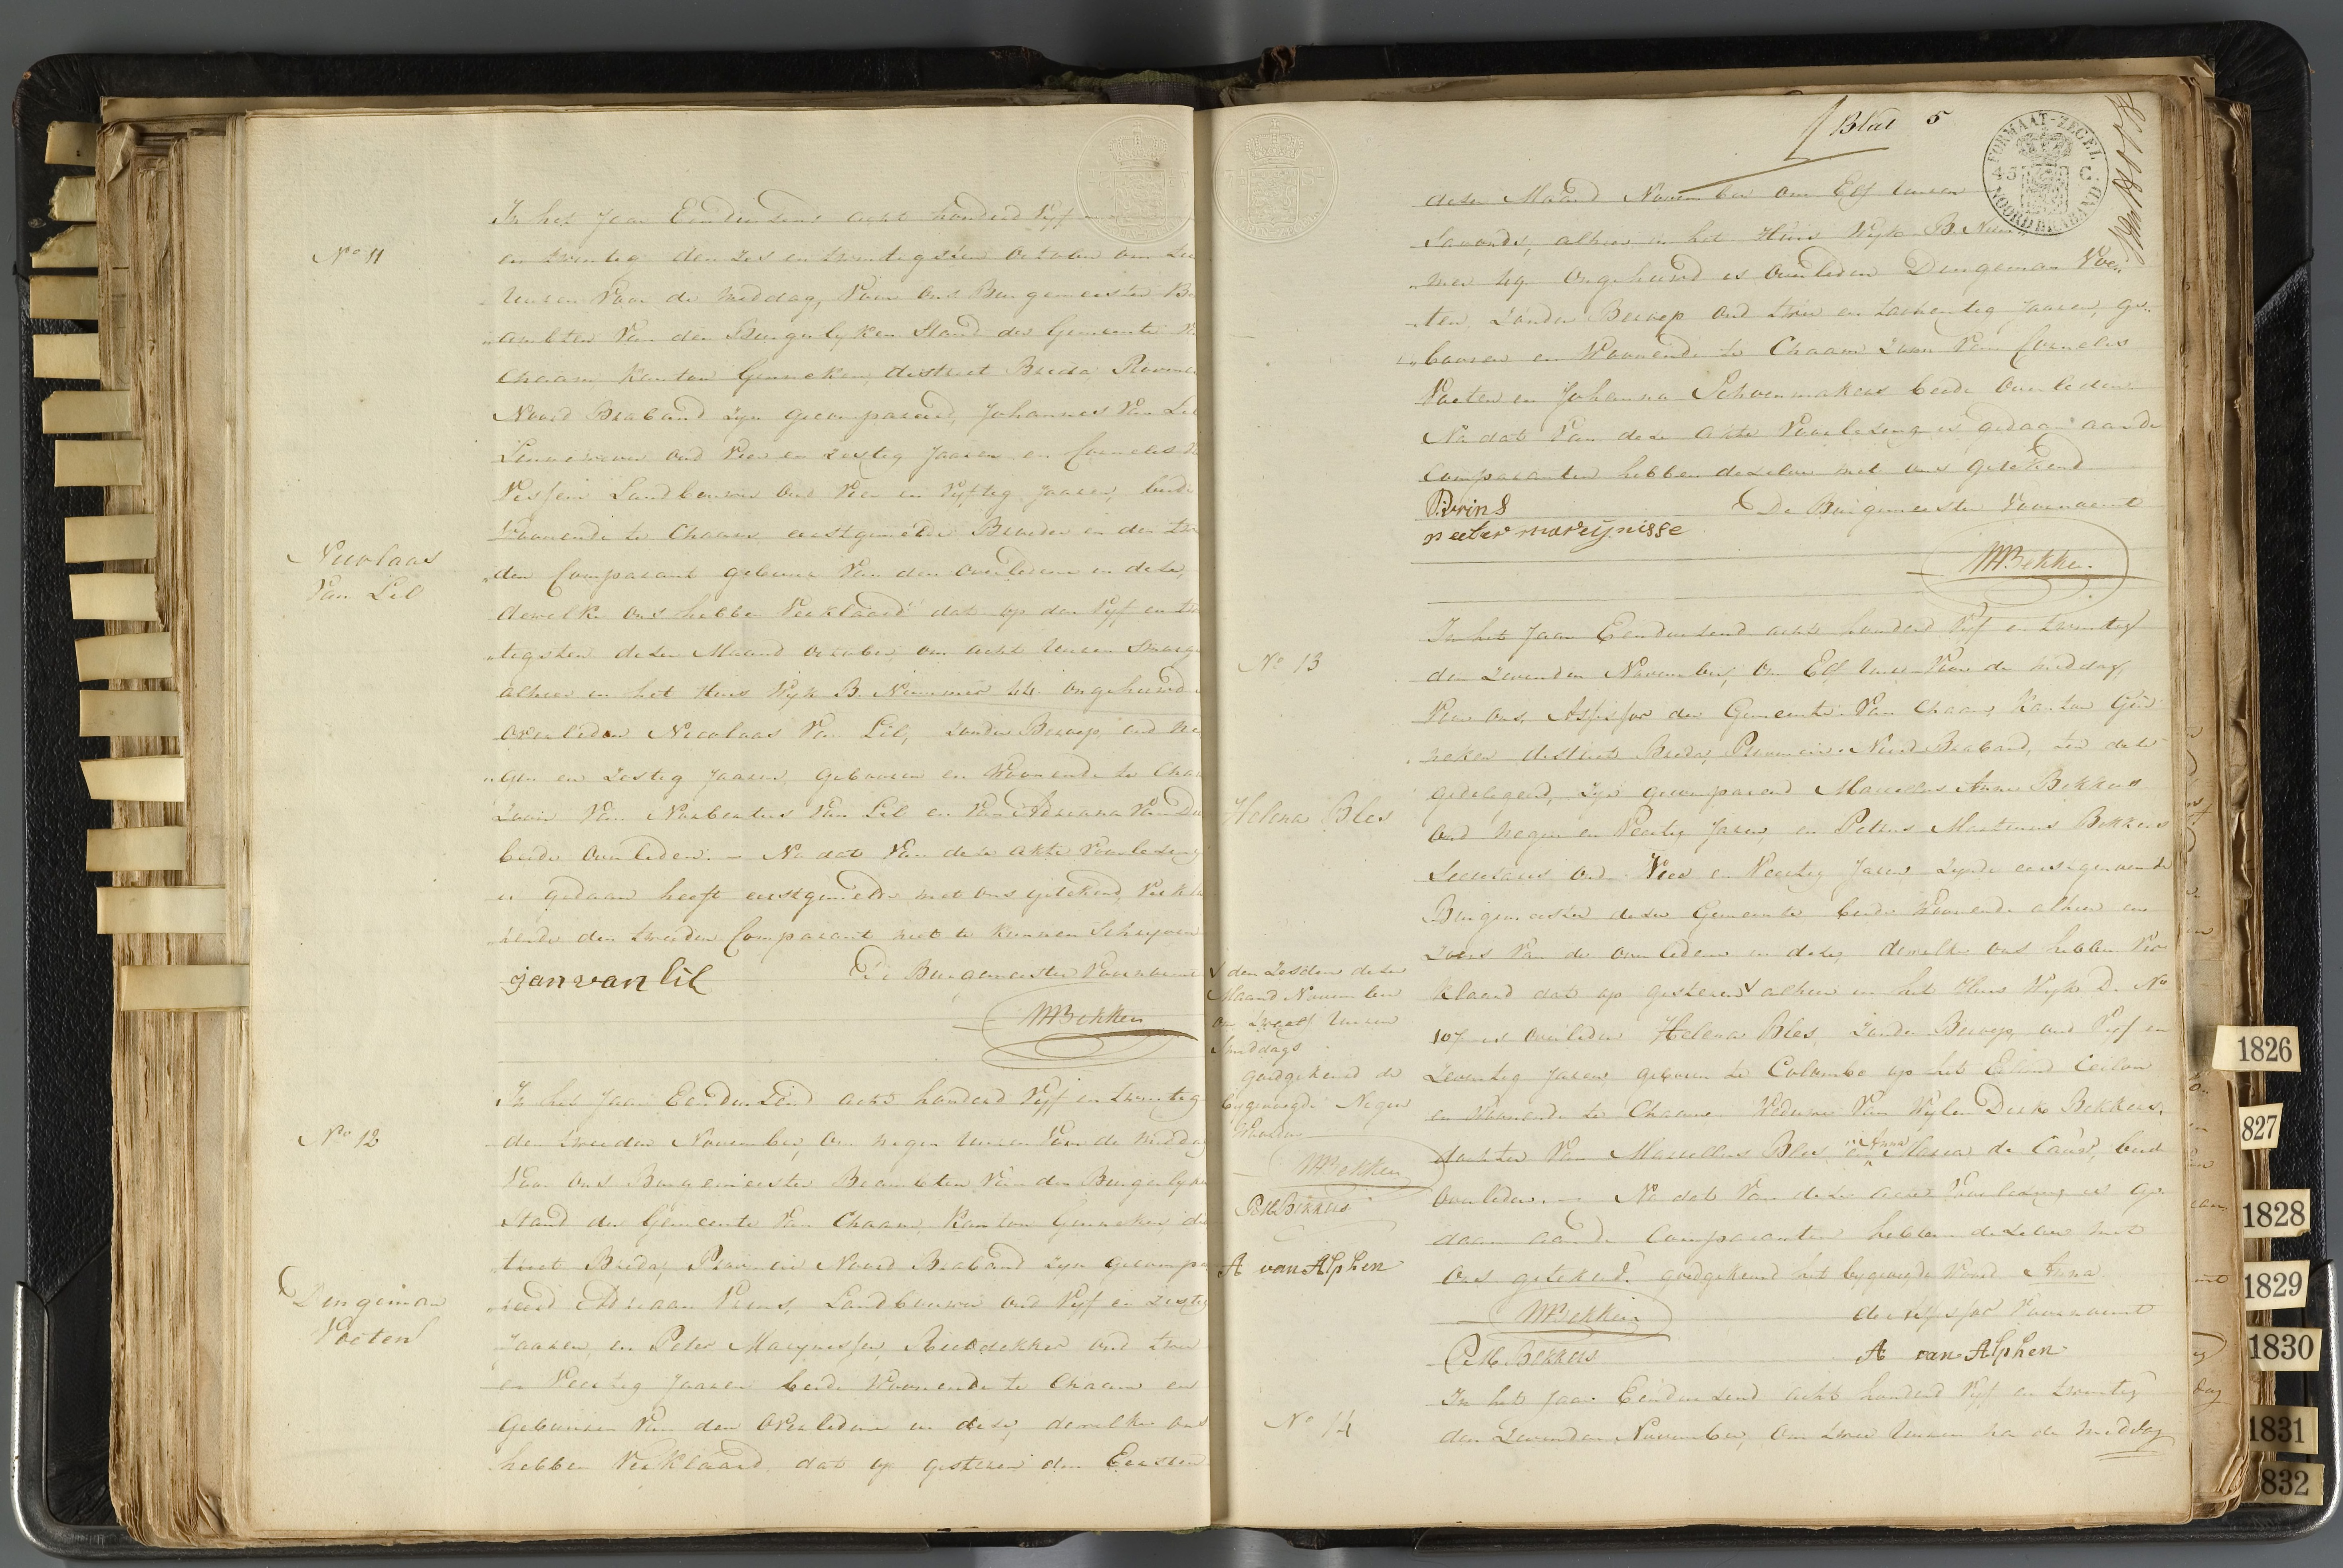 No 11
Nicolaas
Van Lil
In het Jaar Eenduizend acht honderd Vyf
en twintig den zes en twintigsten october om
Uuren Voor de middag, Voor ons Burgemeester
ambten Van den Burgerlyken Stand der Gemeente
Chaam Kanton Ginneken, district Breda,
Noord Braband zyn gecompareerd, Johannes Van Lil
oud Vier en zestig Jaaren en Cornelis
Landbouwer oud Vier en Vyftig Jaaren, beide
Woonende te Chaam, eerstgemelde Broeder en den
den Comparant gebuur Van den Overledene in deze,
dewelke ons hebben Verklaard dat op den Vyf en
tigsten dezer Maand october, om acht Uuren
alhier in het Huis Wyk B. Nummer 44 ongehuwd
overleden Nicolaas Van Lil, zonder Beroep, oud
gen en zestig Jaaren, gebooren en Woonende te
Zoon Van Norbertus Van Lil en Van Adriana Van
beide Overleden. – Na dat Van deze akte Voorlezing
is gedaan heeft eerstgemelde met ons getekend,
den tweeden Comparant niet te kunnen Schryven
jan van lil De Burgemeester
MABekkers
No 12
Dingeman
Voeten
In het Jaar Eenduizend acht honderd Vyf en twintig
den tweeden November, om negen Uuren Voor de
Voor ons Burgemeester Beambten Van den
Stand der Gemeente Van Chaam, Kanton Ginneken,
trict Breda, Provincie Noord Braband zyn
reerd Adriaan Prins, Landbouwer oud Vyf en
Jaaren, en Peter Marynessen, Rietdekker oud twee
en Veertig Jaaren beide Woonende te Chaam en
Gebuuren Van den Overledene in deze, dewelke ons
hebben Verklaard, dat op gisteren den Eersten
Blad 5
FORMAAT-ZEGEL
45 C.
NOORD BRABAND
dezer Maand November om Elf Uuren
Savonds, alhier in het Huis Wyk B.
mer 49 ongehuwd is Overleden Dingeman Voe
ten, Zonder Beroep oud twee en tachentig Jaaren, ge
booren en Woonende te Chaam Zoon Van Cornelis
Voeten en Johanna Schoenmakers beide Overleden
Na dat Van deze akte Voorlezing is gedaan aan de
Comparanten hebben dezelve met ons getekend
Prins De Burgemeester Voornoemt
peeter mareijnisse
MABekkers
No 13
Helena Bles
In het Jaar Eenduizend acht honderd Vyf en twintig
den Zevenden November, om Elf Uuren Voor de middag,
Voor ons, Assessor der Gemeente Van Chaam, Kanton Gin
neken district Breda, Provincie Noord Braband,
gedelegeerd, zyn gecompareerd Marcellus Bekkers
oud negen en Veertig Jaren, en Petrus Martinus Bekkers
Secretaris oud Vier en Veertig Jaren zynde eerstgenoemde
Burgemeester dezer Gemeente beide Woonende alhier en
Zoons Van de overledene in deze, dewelke ons hebben Ver
klaard dat op gisteren √ alhier in het Huis Wyk D. No
107 is overleden Helena Bles, Zonder Beroep, oud Vyf en
Zeventig Jaren, geboren te Colombo op het Eiland Ceilon
en Woonende te Chaam Weduwe Van Wylen Dirk Bekkers,
dochter Van Marcellus Bles en Anna Maria de Cauw, beide
Overleden. – Na dat Van deze acte Voorlezing is ge
daan aan de Comparanten hebben dezelve met
ons getekend. goedgekeurd het bygevoegde Woord Anna
MABekkers de Assessor Voornoemt
P.M. Bekkers A van Alphen
√ den Zesden dezer
Maand November
om twaalf Uuren
Smiddags
goedgekeurd de
bygevoegde Negen
Woorden
MABekkers
P.M. Bekkers
A van Alphen
No 14
In het Jaar Eenduizend acht honderd Vyf en twintig
den Zevenden November, om twee Uuren na de middag
1826
827
1828
1829
1830
1831
832